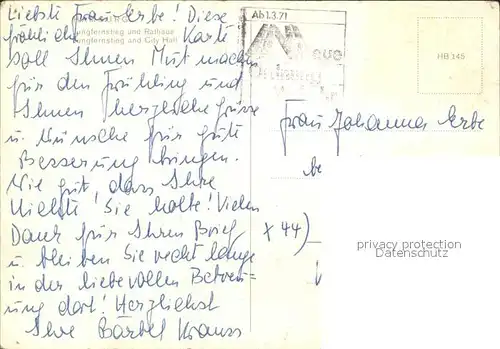 Liebste Frau Erbe! Diese
fröhliche Karte
Jungfernstieg und Rathaus
Jungfernstieg and City Hall
soll Ihnen Mut machen
für den Frühling und
Ihnen herzliche Grüsse
u. Wünsche für gute
Besserung bringen.
Wie gut, dass Ihre
Nichte Sie holte! Vielen
Dank für Ihren Brief
u. bleiben Sie recht lange
in der liebevollen Betreu=
ung dort! Herzlichst
Ihre Bärbel Krauss
Ab 1.3.71
Neue
HB 145
Frau Johanna Erbe
be
x 44)
privacy protection
Datenschutz